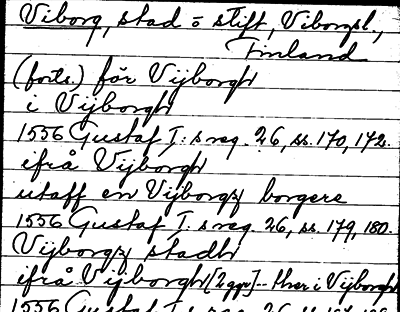 Viborg, stad o stift, Viborgsl.,
Finland
(forts.) för Vijborgh
i Vijborgh
1556 Gustaf I:s reg. 26, ss. 170, 172.
ifrå Vijborgh
utaff en Vijborgz borgere
1556 Gustaf I:s reg. 26, ss. 179, 180.
Vijborgz stadh
ifrå Vijborgh [2 ggr] -- ther i Vijborgh
1556 Gustaf I:s reg. 26